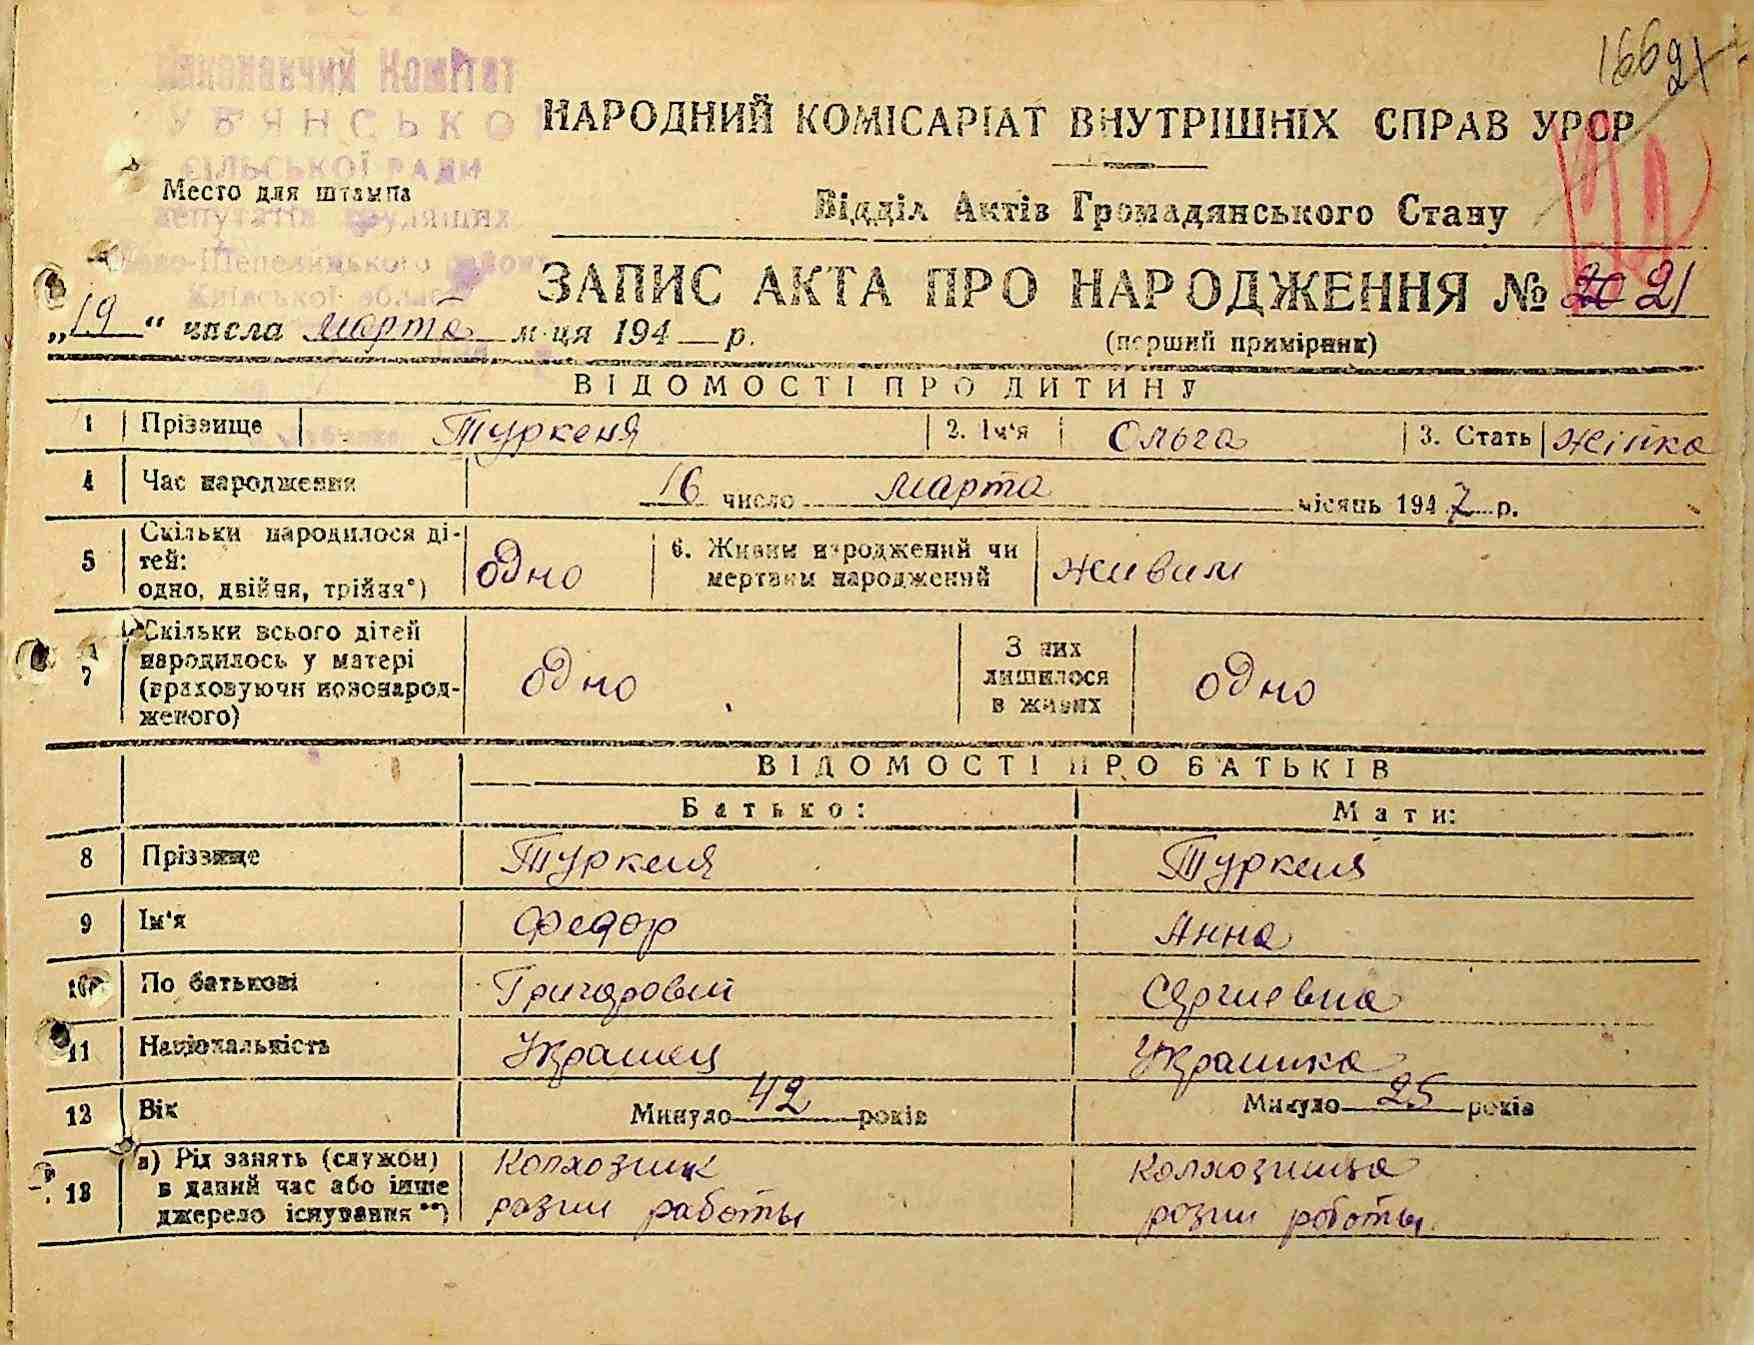 166 21
Виконавчий Комітет
СІЛЬСЬКОЇ РАДИ
депутатів трудящих
Київської області
НАРОДНИЙ КОМІСАРІАТ ВНУТРІШНІХ СПРАВ УРСР
Место для штампа
Відділ Актів Громадянського Стану
ЗАПИС АКТА ПРО НАРОДЖЕННЯ № 20 21
„19“ числа марта м-ця 194 р.
(перший примірник)
ВІДОМОСТІ ПРО ДИТИНУ
1 Прізвище Туркеня 2. Ім'я Ольга 3. Стать жінка
4 Час народження 16 число марта місяць 1947 р.
5 Скільки народилося ді-
тей:
одно, двійня, трійня*) одно 6. Живим народжений чи
мертвим народжений живим
7 Скільки всього дітей
народилось у матері
(враховуючи новонарод-
женого) одно З них
лишилося
в живих одно
ВІДОМОСТІ ПРО БАТЬКІВ
Батько: Мати:
8 Прізвище Туркеня Туркеня
9 Ім'я Федор Анна
10 По батькові Григоровий Сергиевна
11 Національність Украинец Украинка
12 Вік Минуло 42 років Минуло 25 років
13 а) Рід занять (служби)
в даний час або інше
джерело існування**) Колхозник
разни работы Колхозница
розни роботы